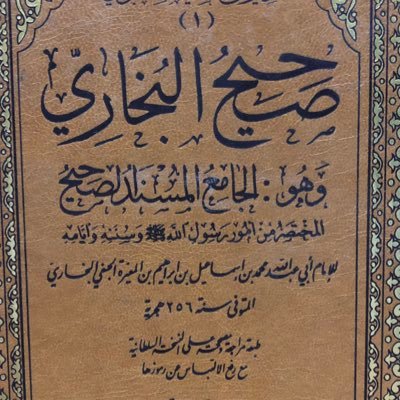 (١)
صَحِيحُ البُخَارِيِّ
وَهُوَ : الجَامِعُ المُسْنَدُ الصَّحِيحُ
المُختَصَرُ مِنْ أُمُورِ رَسُولِ اللهِ ﷺ وَسُنَنِهِ وَأَيَّامِهِ
للإمام أبي عبد الله محمد بن إسماعيل بن إبراهيم بن المغيرة الجعفي البخاري
المتوفى سنة ٢٥٦ هجرية
طبعة مراجعة ومصححة على النسخة السلطانية
مع رفع الالتباس عن رموزها